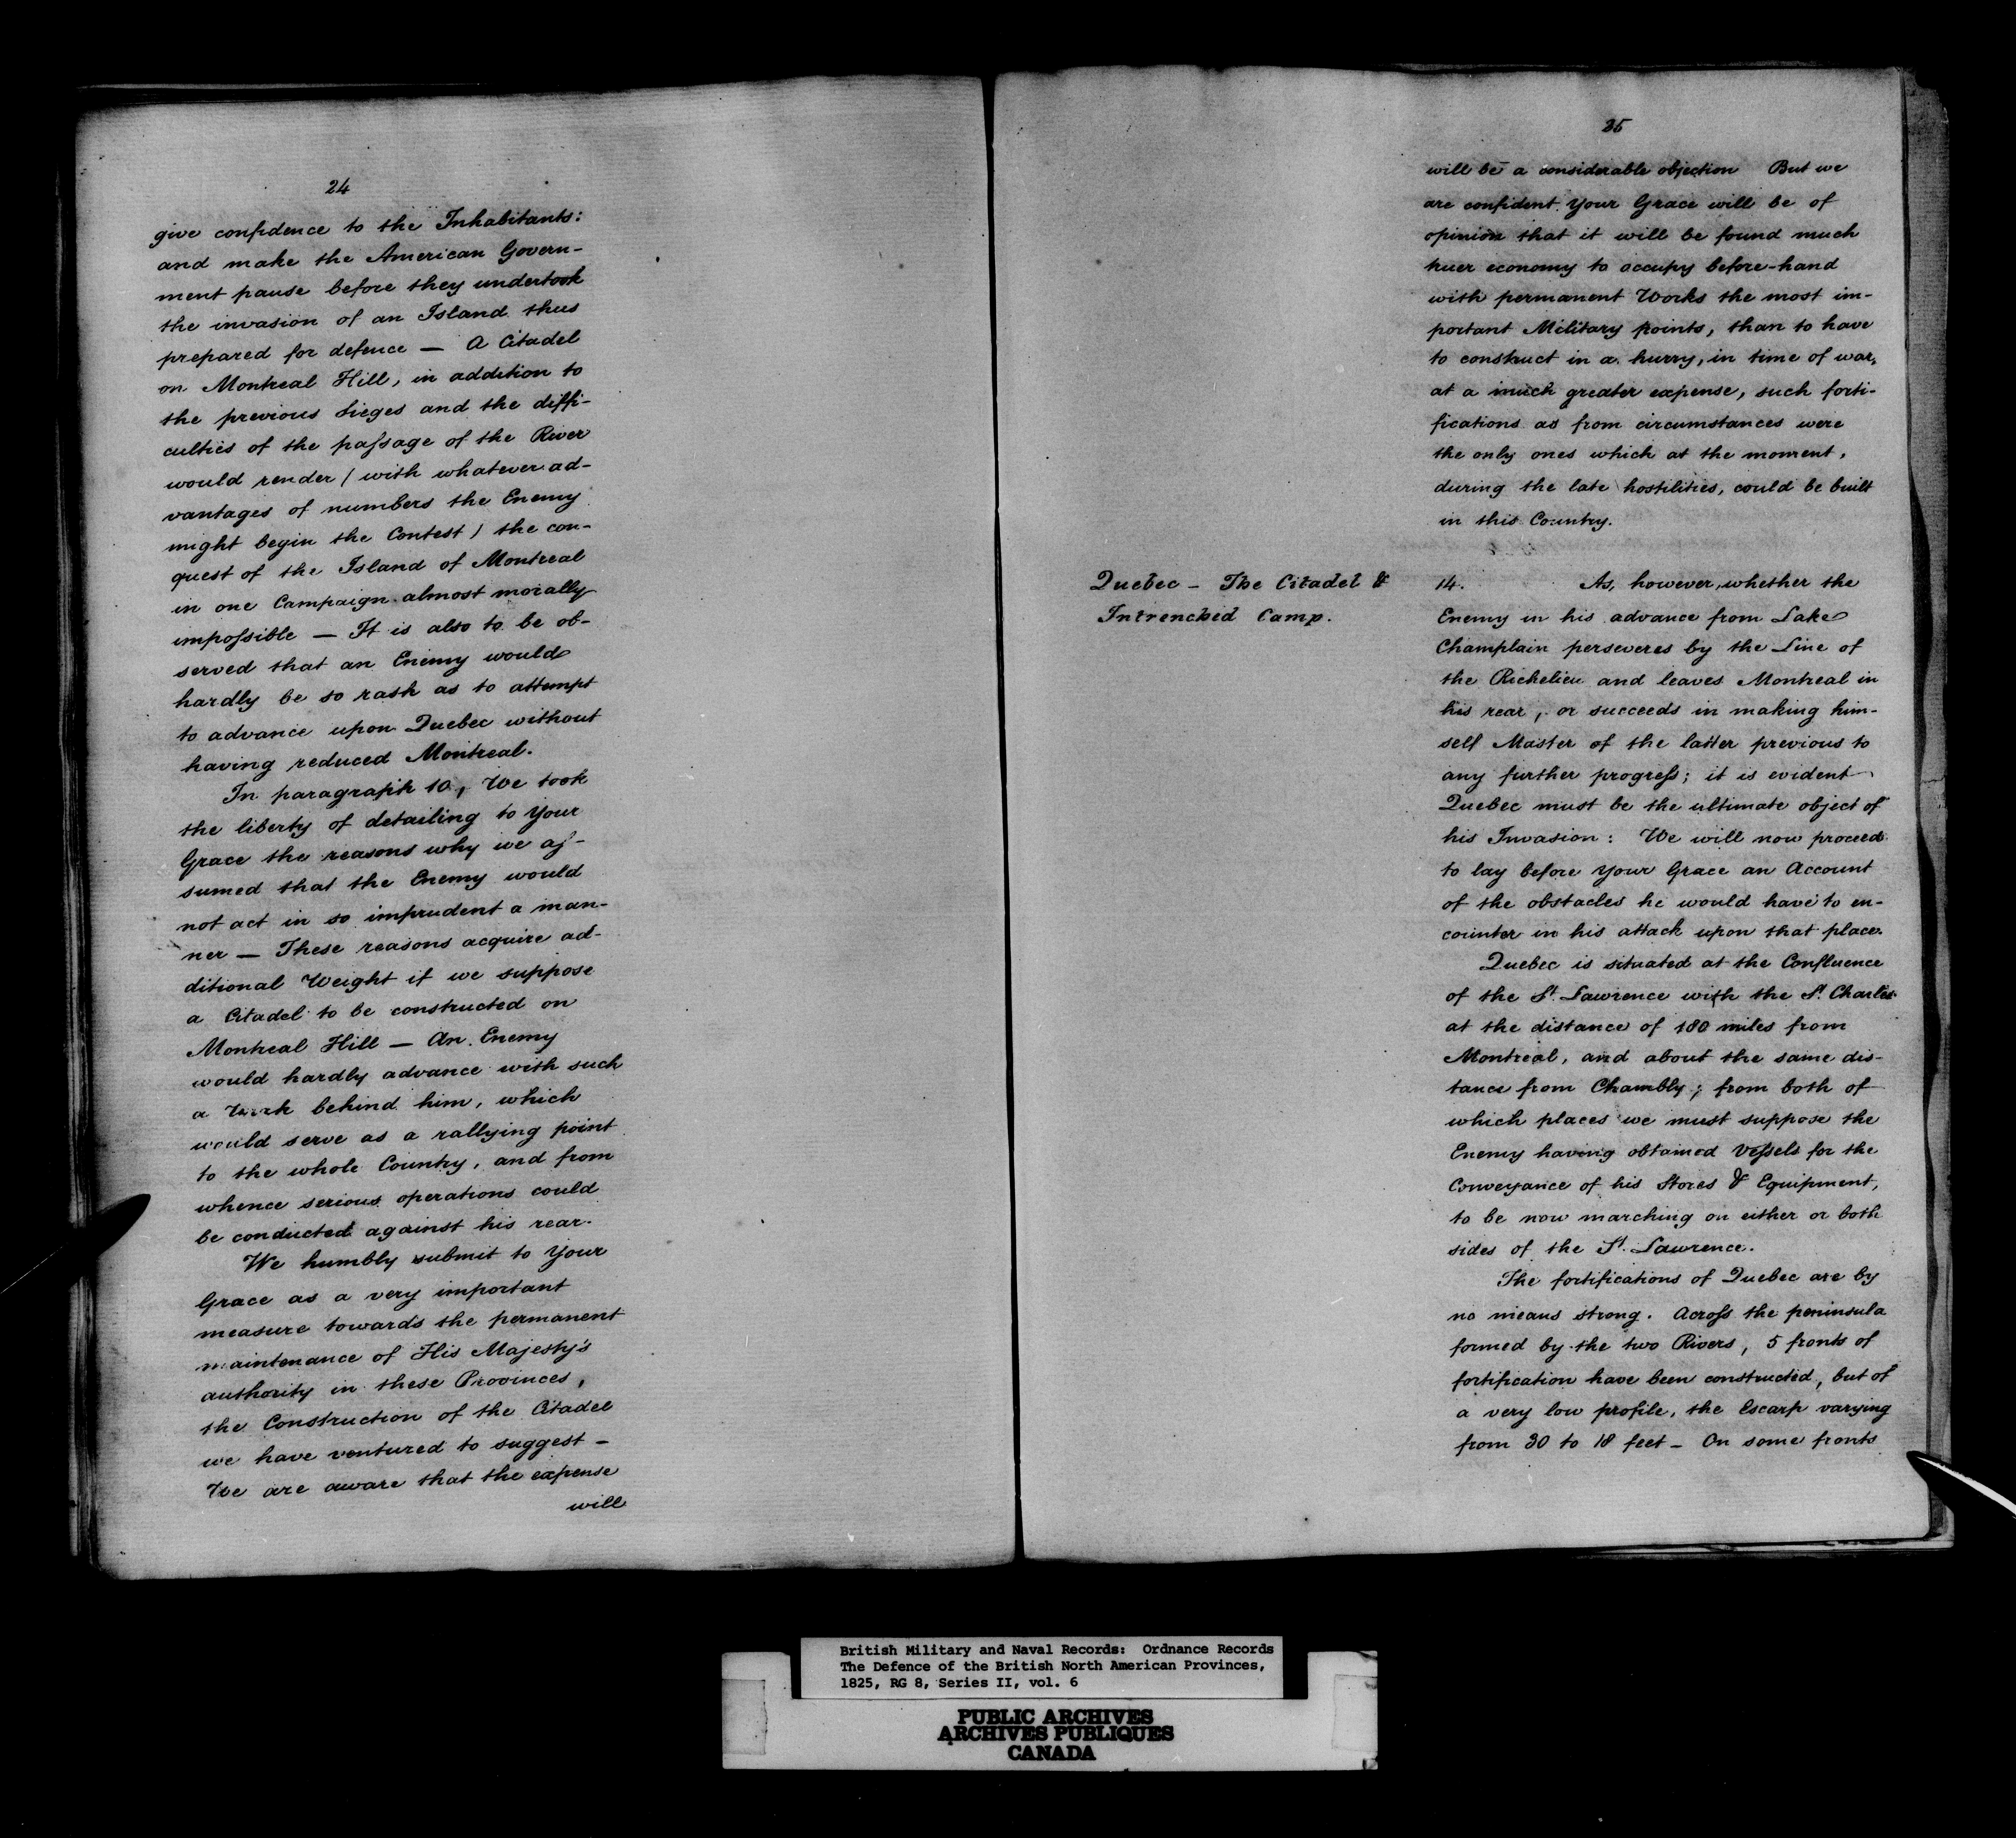 24
give confidence to the Inhabitants:
and make the American Govern-
ment pause before they undertook
the invasion of an Island thus
prepared for defence — A Citadel
on Montreal Hill, in addition to
the previous Sieges and the diffi-
culties of the paſsage of the River
would render / with whatever ad-
vantages of numbers the Enemy
might begin the Contest / the con-
quest of the Island of Montreal
in one Campaign almost morally
impoſsible — It is also to be ob-
served that an Enemy would
hardly be so rash as to attempt
to advance upon Quebec without
having reduced Montreal.
In paragraph 10, We took
the liberty of detailing to Your
Grace the reasons why we aſ-
sumed that the Enemy would
not act in so imprudent a man-
ner — These reasons acquire ad-
ditional Weight if we suppose
a Citadel to be constructed on
Montreal Hill — An Enemy
would hardly advance with such
a Work behind him, which
would serve as a rallying point
to the whole Country, and from
whence serious operations could
be conducted against his rear.
We humbly submit to Your
Grace as a very important
measure towards the permanent
maintenance of His Majesty's
authority in these Provinces,
the Construction of the Citadel
we have ventured to suggest —
We are aware that the expense
will
35
will be a considerable objection But we
are confident Your Grace will be of
opinion that it will be found much
truer economy to occupy before-hand
with permanent Works the most im-
portant Military points, than to have
to construct in a hurry, in time of war,
at a much greater expense, such forti-
fications as from circumstances were
the only ones which at the moment,
during the late hostilities, could be built
in this Country.
Quebec — The Citadel &
Intrenched Camp.
14. As, however, whether the
Enemy in his advance from Lake
Champlain perseveres by the Line of
the Richelieu and leaves Montreal in
his rear, or succeeds in making him-
self Master of the latter previous to
any further progreſs; it is evident
Quebec must be the ultimate object of
his Invasion: We will now proceed
to lay before Your Grace an Account
of the obstacles he would have to en-
counter in his attack upon that place.
Quebec is situated at the Confluence
of the St. Lawrence with the St. Charles
at the distance of 180 miles from
Montreal, and about the same dis-
tance from Chambly; from both of
which places we must suppose the
Enemy having obtained Veſsels for the
Conveyance of his Stores & Equipment,
to be now marching on either or both
sides of the St. Lawrence.
The fortifications of Quebec are by
no means strong. Acroſs the peninsula
formed by the two Rivers, 5 fronts of
fortification have been constructed, but of
a very low profile, the Escarp varying
from 30 to 18 feet — On some fronts
British Military and Naval Records: Ordnance Records
The Defence of the British North American Provinces,
1825, RG 8, Series II, vol. 6
PUBLIC ARCHIVES
ARCHIVES PUBLIQUES
CANADA